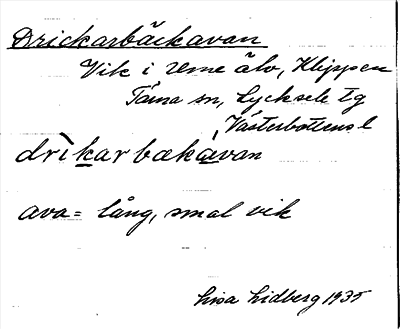 Drickarbäckavan
Vik i Ume älv, Klippen
Tärna sn, Lycksele tg
Västerbottens l
drìkarbækavan
ava = lång, smal vik
Lisa Lidberg 1935